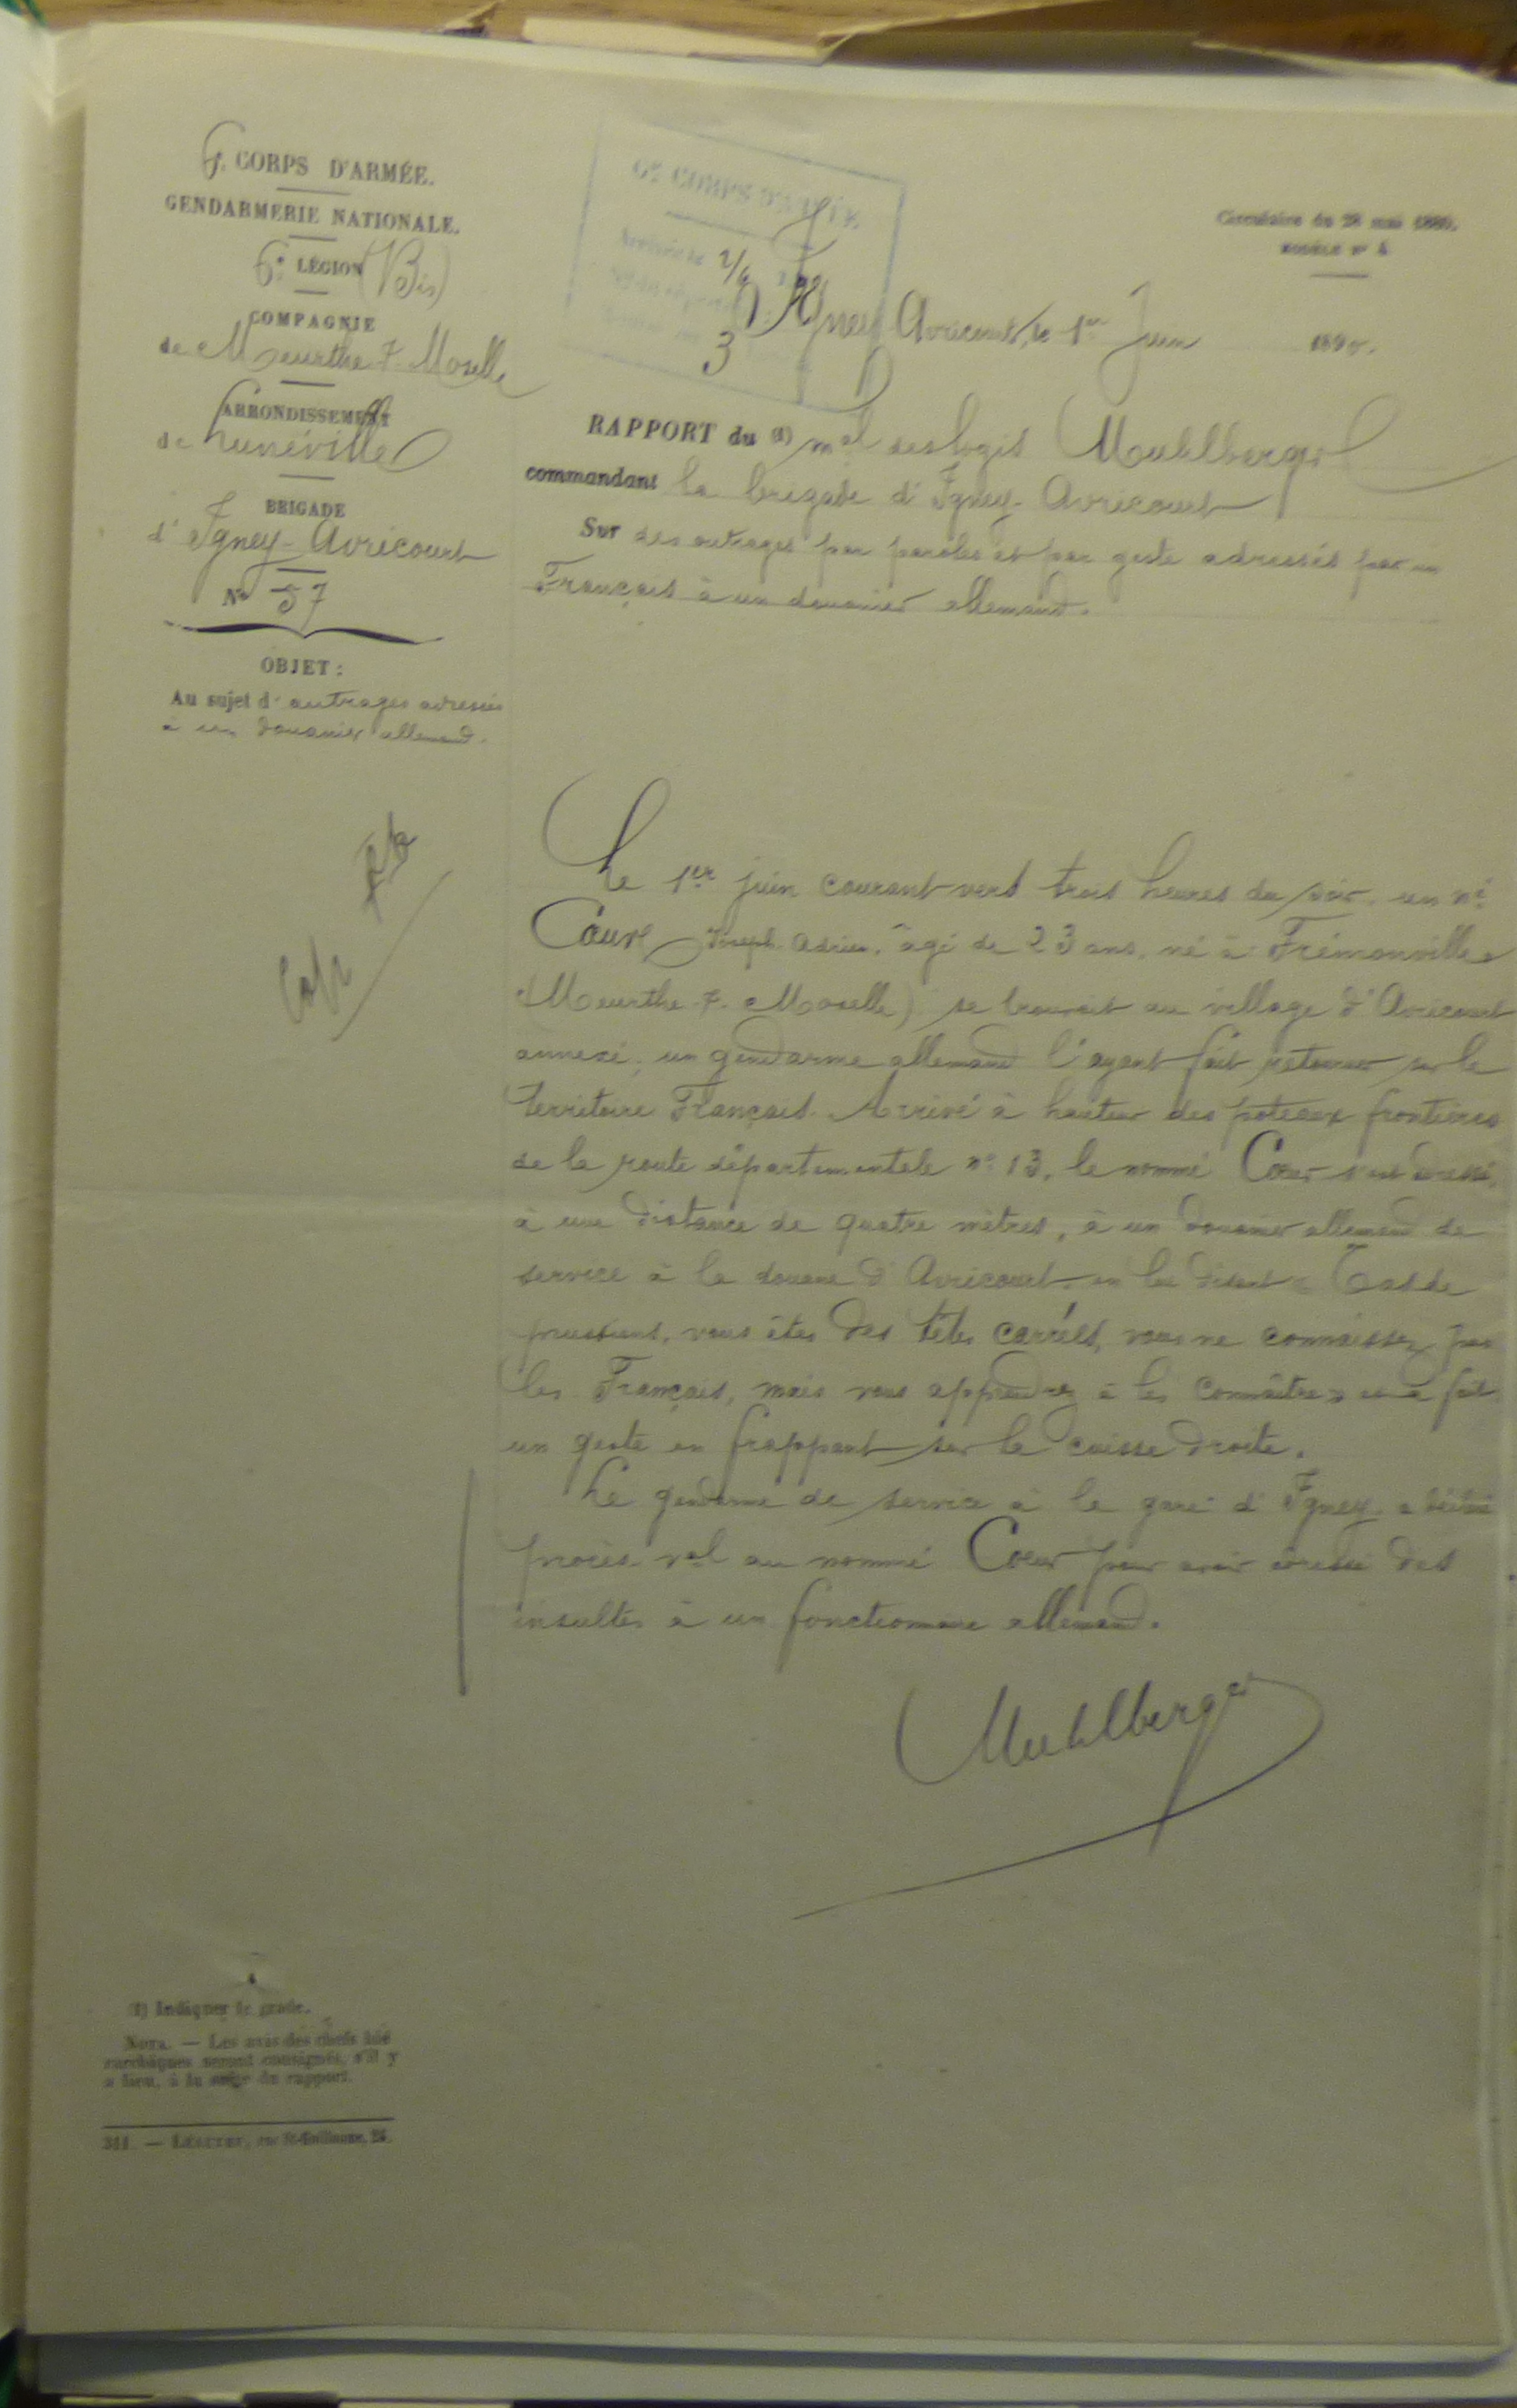 6e CORPS D'ARMÉE.
GENDARMERIE NATIONALE.
6e LÉGION (Bis)
COMPAGNIE
de Meurthe & Moselle
ARRONDISSEMENT
de Lunéville
BRIGADE
d'Igney-Avricourt
No 57
OBJET :
Au sujet d'outrages adressés
à un douanier allemand.
6e CORPS D'ARMÉE
3
Circulaire du 28 mai 1880.
MODÈLE No 4
Igney Avricourt, le 1er Juin 1890.
RAPPORT du (1) mal des logis Muhlberger
commandant la brigade d'Igney-Avricourt
Sur des outrages par paroles et par geste adressés par un
Français à un douanier allemand.
Le 1er juin courant vers trois heures du soir, un né
Cœur Joseph Adrien, âgé de 23 ans, né à Frémonville
(Meurthe & Moselle) se trouvait au village d'Avricourt
annexé, un gendarme allemand l'ayant fait retourner sur le
territoire Français. Arrivé à hauteur des poteaux frontières
de la route départementale no 13, le nommé Cœur s'est adressé,
à une distance de quatre mètres, à un douanier allemand de
service à la douane d'Avricourt en lui disant « Tas de
prussiens, vous êtes des têtes carrées, vous ne connaissez pas
les Français, mais vous apprendrez à les connaître » et a fait
un geste en frappant sur la cuisse droite.
Le gendarme de service à la gare d'Igney a
procès-val au nommé Cœur pour avoir adressé des
insultes à un fonctionnaire allemand.
Muhlberger
(1) Indiquer le grade.
NOTA. — Les avis des chefs hié-
rarchiques seront consignés, s'il y
a lieu, à la suite du rapport.
311. — , rue St-Guillaume, 24.